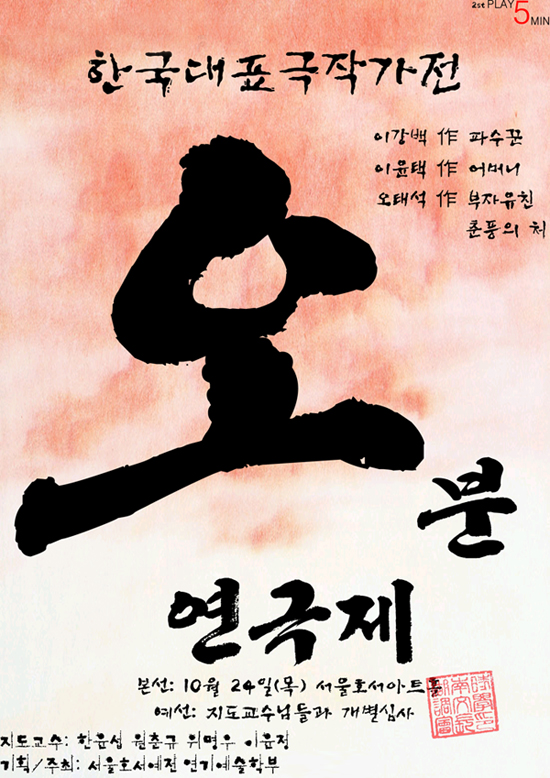 2st PLAY 5 MIN
한국대표극작가전
이강백 作 파수꾼
이윤택 作 어머니
오태석 作 부자유친
춘풍의 처
오
분
연극제
본선: 10월 24일(목) 서울호서아트홀
예선: 지도교수님들과 개별심사
지도교수: 한윤섭 원춘규 위명우 이윤정
기획/주최: 서울호서예전 연기예술학부